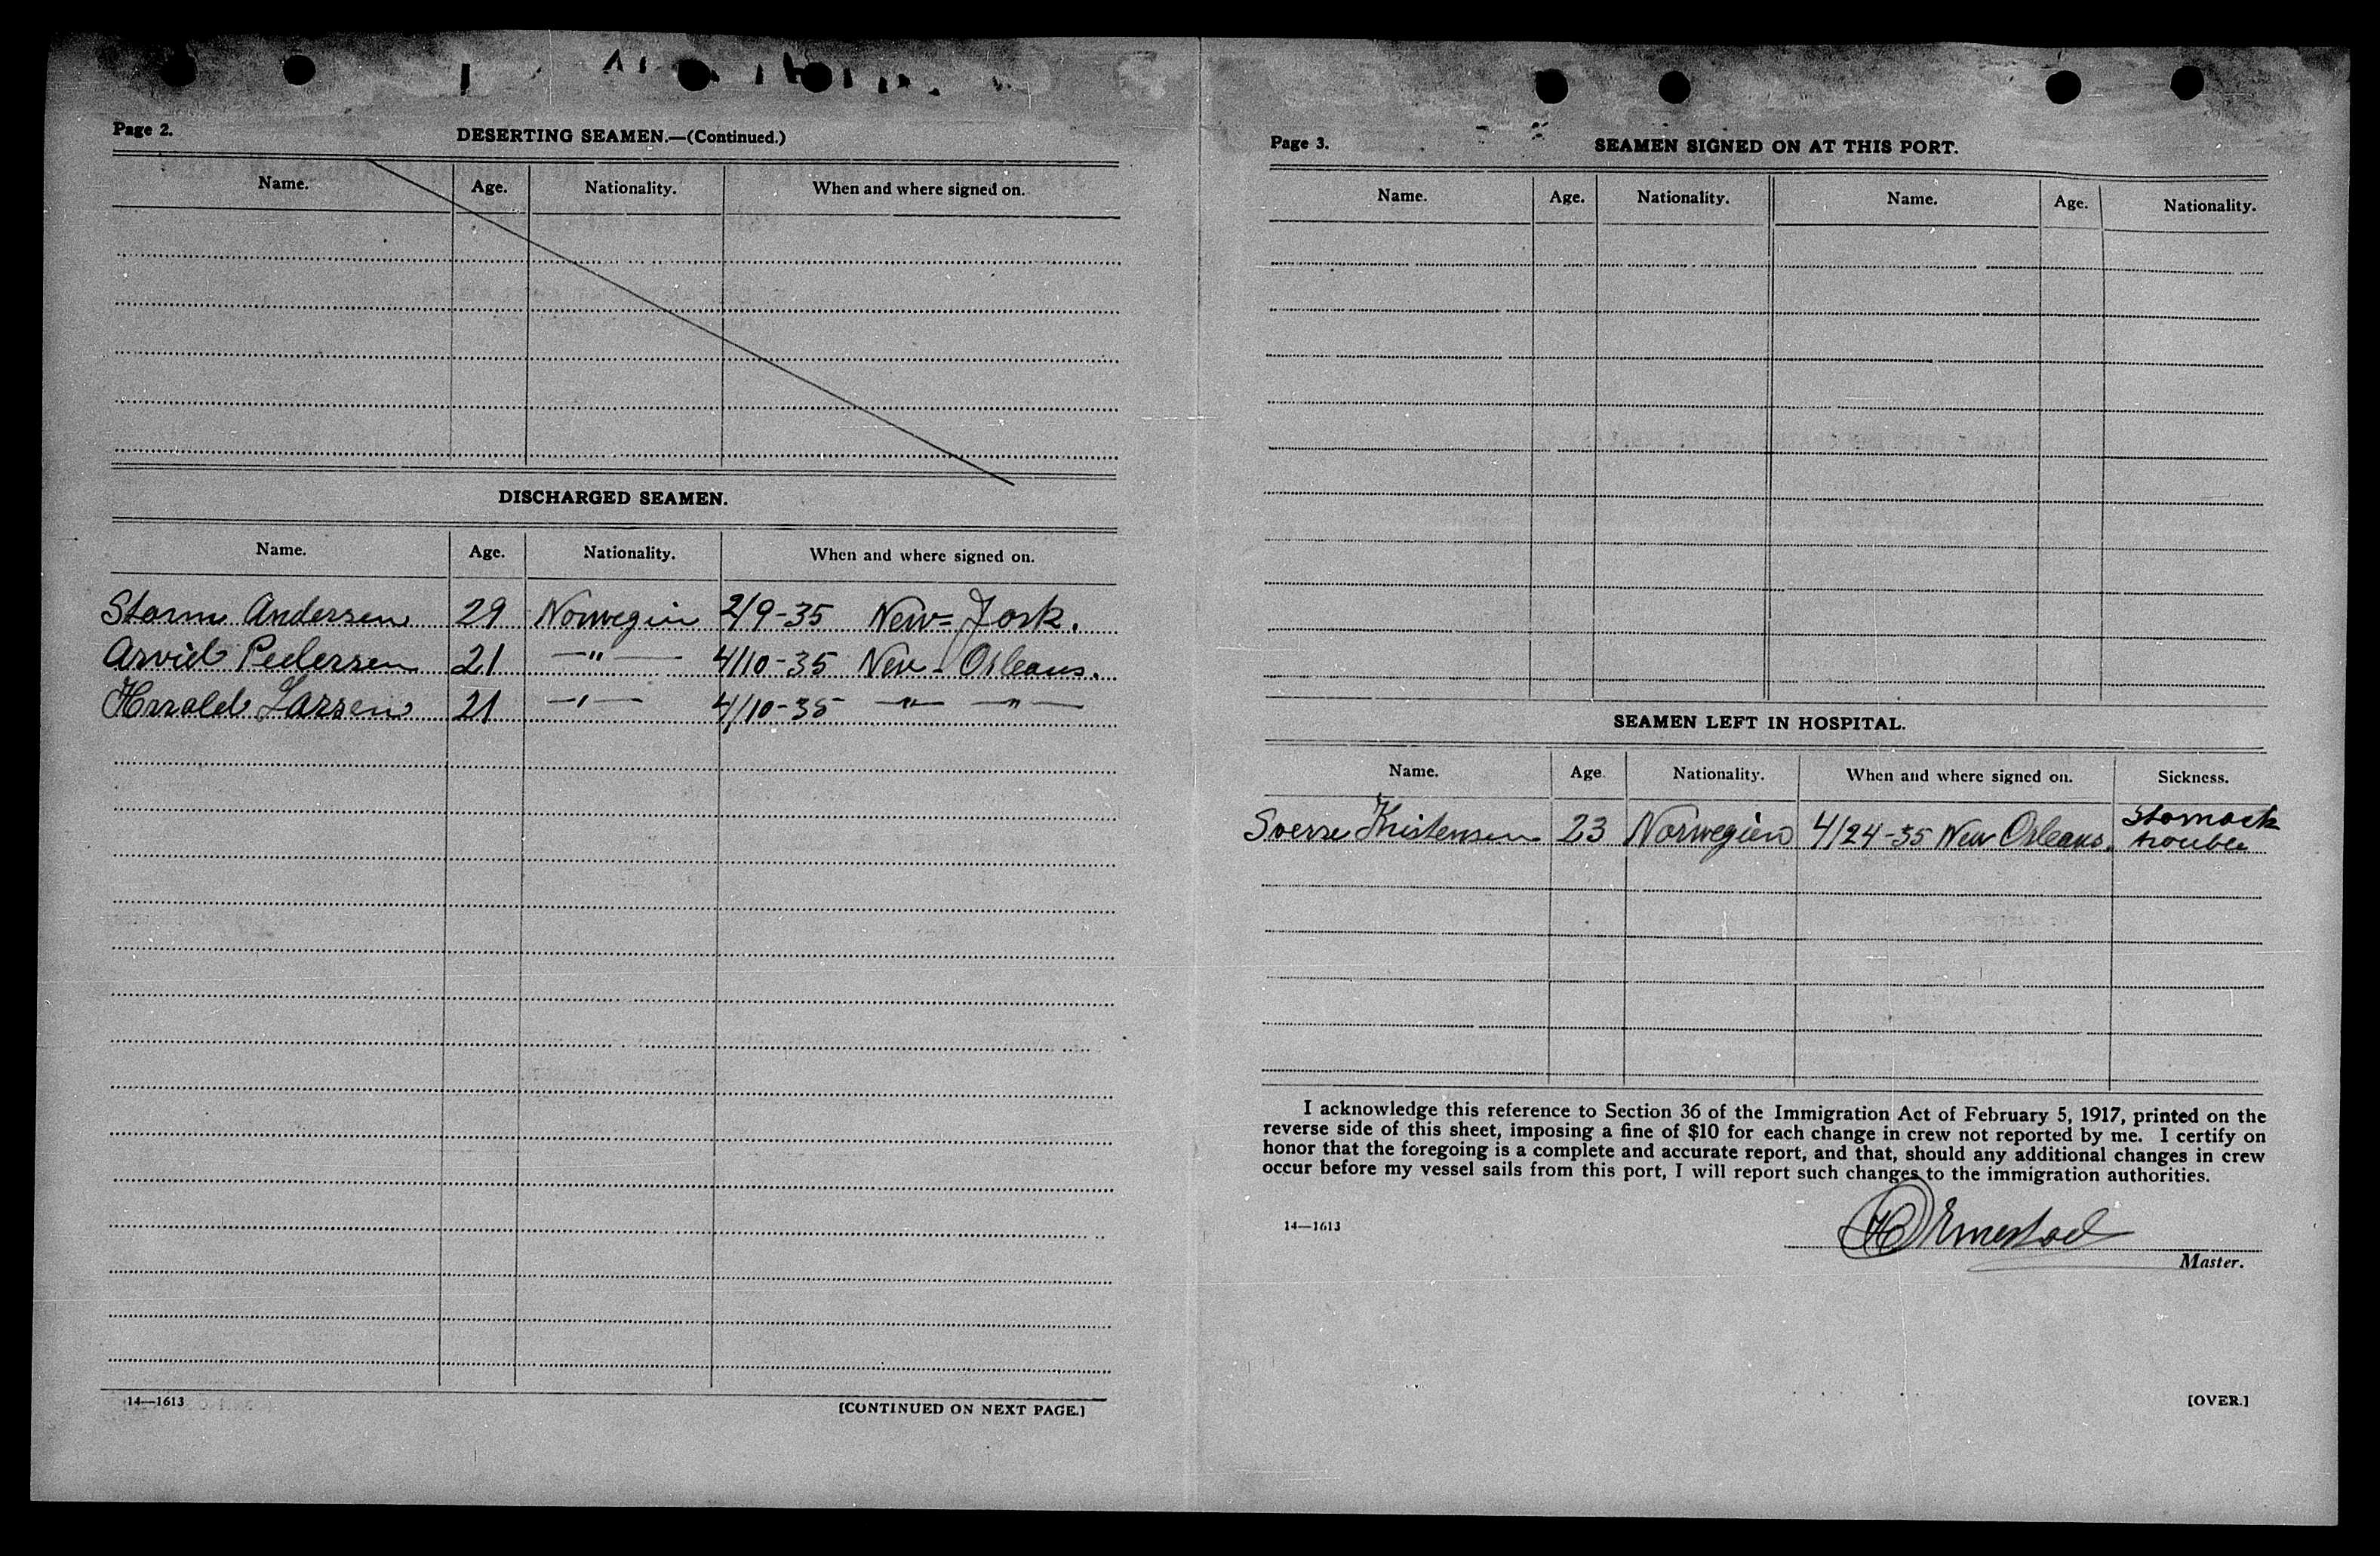 Page 2.
DESERTING SEAMEN.—(Continued.)
Name. Age. Nationality. When and where signed on.
DISCHARGED SEAMEN.
Name. Age. Nationality. When and where signed on.
Storm Andersen 29 Norwegin 2/9-35 New=York.
Arvid Pedersen 21 —"— 4/10-35 New-Orleans.
Harald Larsen 21 —"— 4/10-35 —"— —"—
14—1613
[CONTINUED ON NEXT PAGE.]
Page 3.
SEAMEN SIGNED ON AT THIS PORT.
Name. Age. Nationality. Name. Age. Nationality.
SEAMEN LEFT IN HOSPITAL.
Name. Age. Nationality. When and where signed on. Sickness.
Sverre Kristensen 23 Norwegien 4/24-35 New Orleans. Stomack
trouble
I acknowledge this reference to Section 36 of the Immigration Act of February 5, 1917, printed on the
reverse side of this sheet, imposing a fine of $10 for each change in crew not reported by me. I certify on
honor that the foregoing is a complete and accurate report, and that, should any additional changes in crew
occur before my vessel sails from this port, I will report such changes to the immigration authorities.
14—1613
Master.
[OVER.]